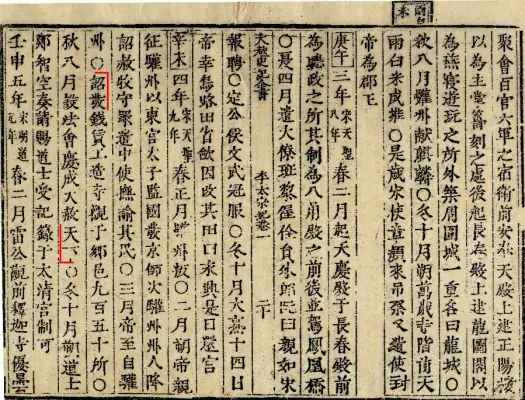 聚會百官六軍之宿衛前安奉天殿上建正陽樓
以為主掌籌刻之處後起長春殿上建龍圖閣以
為燕寢遊玩之所外築周圍城一重名曰龍城○
秋八月驩州献麒麟○冬十月朔萬歲寺階前天
雨白米成堆○是歲宋使章頻來吊祭又遣使封
帝為郡王
庚午三年宋天聖八年春二月起天慶殿于長春殿前
為聽政之所其制為八角殿之前後並駕鳳凰橋
○夏四月遣大僚班黎偓佺員外郎阮曰親如宋
大越史記全書 李太宗紀卷一 二十
報聘○定公侯文武冠服○冬十月大熟十四日
帝幸烏路田省歛因改其田曰永興是日還宮
辛未四年宋天聖九年春正月驩州叛○二月朔帝親
征驩州以東宮太子監國發京師次驩州州人降
詔赦牧守衆遣中使撫諭其民○三月帝至自驩
州○詔發錢賃工造寺觀于鄉邑九百五十所○
秋八月設法會慶成大赦天下○冬十月朔道士
鄭智空奏請賜道士受記籙于太清宮制可
壬申五年宋明道元年春二月雷公觀前釋迦寺優曇